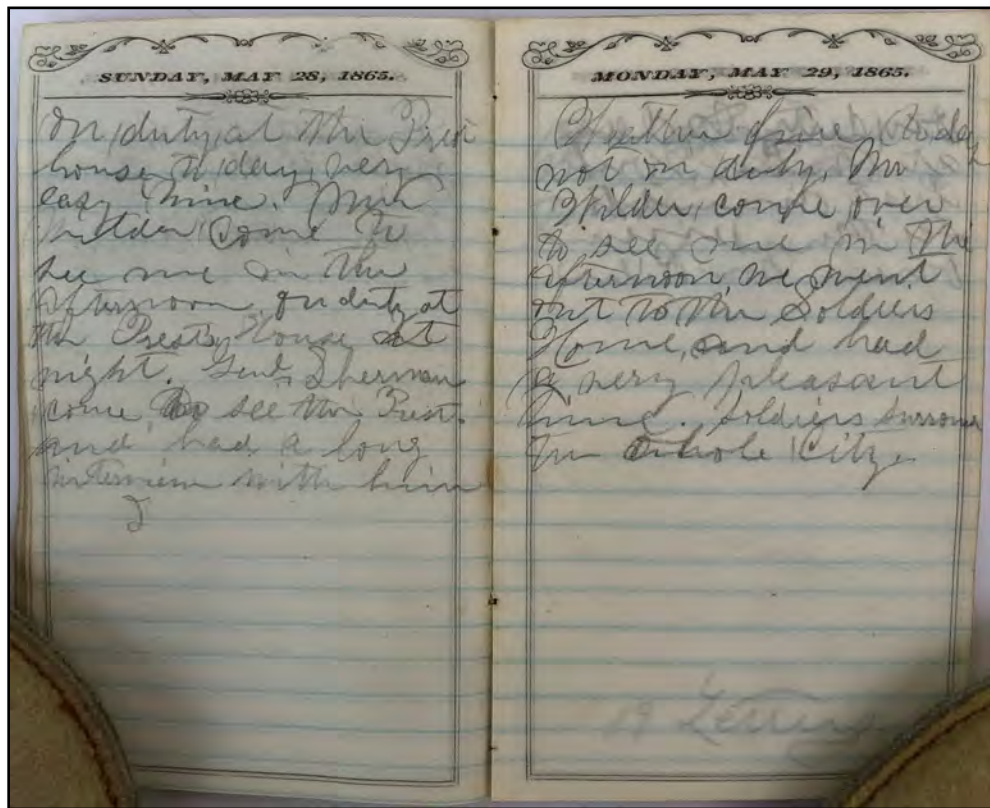 SUNDAY, MAY 28, 1865.
On duty at the Prest
house to day, very
easy time. Mr
Wilder come to
see me in the
afternoon, on duty at
the Prests House at
night. Genl Sherman
come to see the Prest.
and had a long
interview with him
MONDAY, MAY 29, 1865.
Weather fine, to day
not on duty, Mr
Wilder, come over
to see me in the
afternoon, we went
out to the Soldiers
Home, and had
a very pleasant
time. Soldiers
whole City.
19 Letters